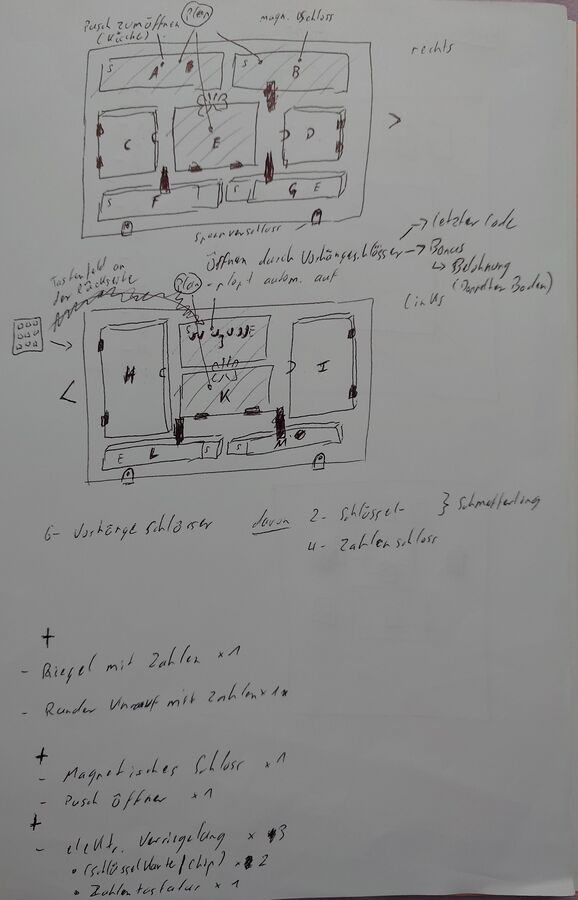 Pusch zum öffnen
(Küche)
Plan
magn. Schloss
rechts
S A B
S B
C
E
D
>
S F
S G E
Spannverschluss
Öffnen durch Vorhängeschlösser
→ letzter Code
→ Bonus
↳ Belohnung
(Doppelter Boden)
Tastenfeld an
der Rückseite
Plan - plopt autom. auf
links
<
H
E
I
K
E L S
S M
6- Vorhänge Schlösser davon 2- Schlüssel- } Schmetterling
4- Zahlenschloss
+
- Riegel mit Zahlen x 1
- Runder mit Zahlen x 1
+
- Magnetisches Schloss x 1
- Pusch Öffner x 1
+
- elektr. Verriegelung x 3
• (Schlüsselkarte/Chip) x 2
• Zahlentastatur x 1